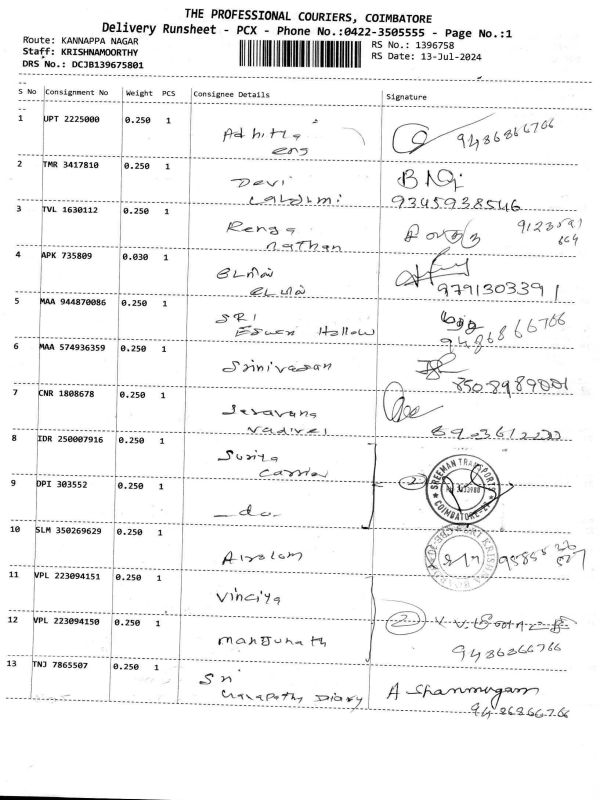 THE PROFESSIONAL COURIERS, COIMBATORE
Delivery Runsheet - PCX - Phone No.:0422-3505555 - Page No.:1
Route: KANNAPPA NAGAR
Staff: KRISHNAMOORTHY
DRS No.: DCJB139675801
RS No.: 1396758
RS Date: 13-Jul-2024
S No Consignment No Weight PCS Consignee Details Signature
1 UPT 2225000 0.250 1 9486866706
2 TMR 3417810 0.250 1 Devi
9345938546
3 TVL 1630112 0.250 1 Renga
nathan
4 APK 735809 0.030 1
9791303391
5 MAA 944870086 0.250 1 SRI
9486866706
6 MAA 574936359 0.250 1 Srinivasan
8508989001
7 CNR 1808678 0.250 1 Saravana
vadivel
8 IDR 250007916 0.250 1 Suriya
SREEMAN TRANSPORTS
COIMBATORE
9 DPI 303552 0.250 1 -do-
2
10 SLM 350269629 0.250 1
11 VPL 223094151 0.250 1
12 VPL 223094150 0.250 1 Manjunath
2
9486866766
13 TNJ 7865507 0.250 1 Sri
Diary
A Shanmugam
9486866766